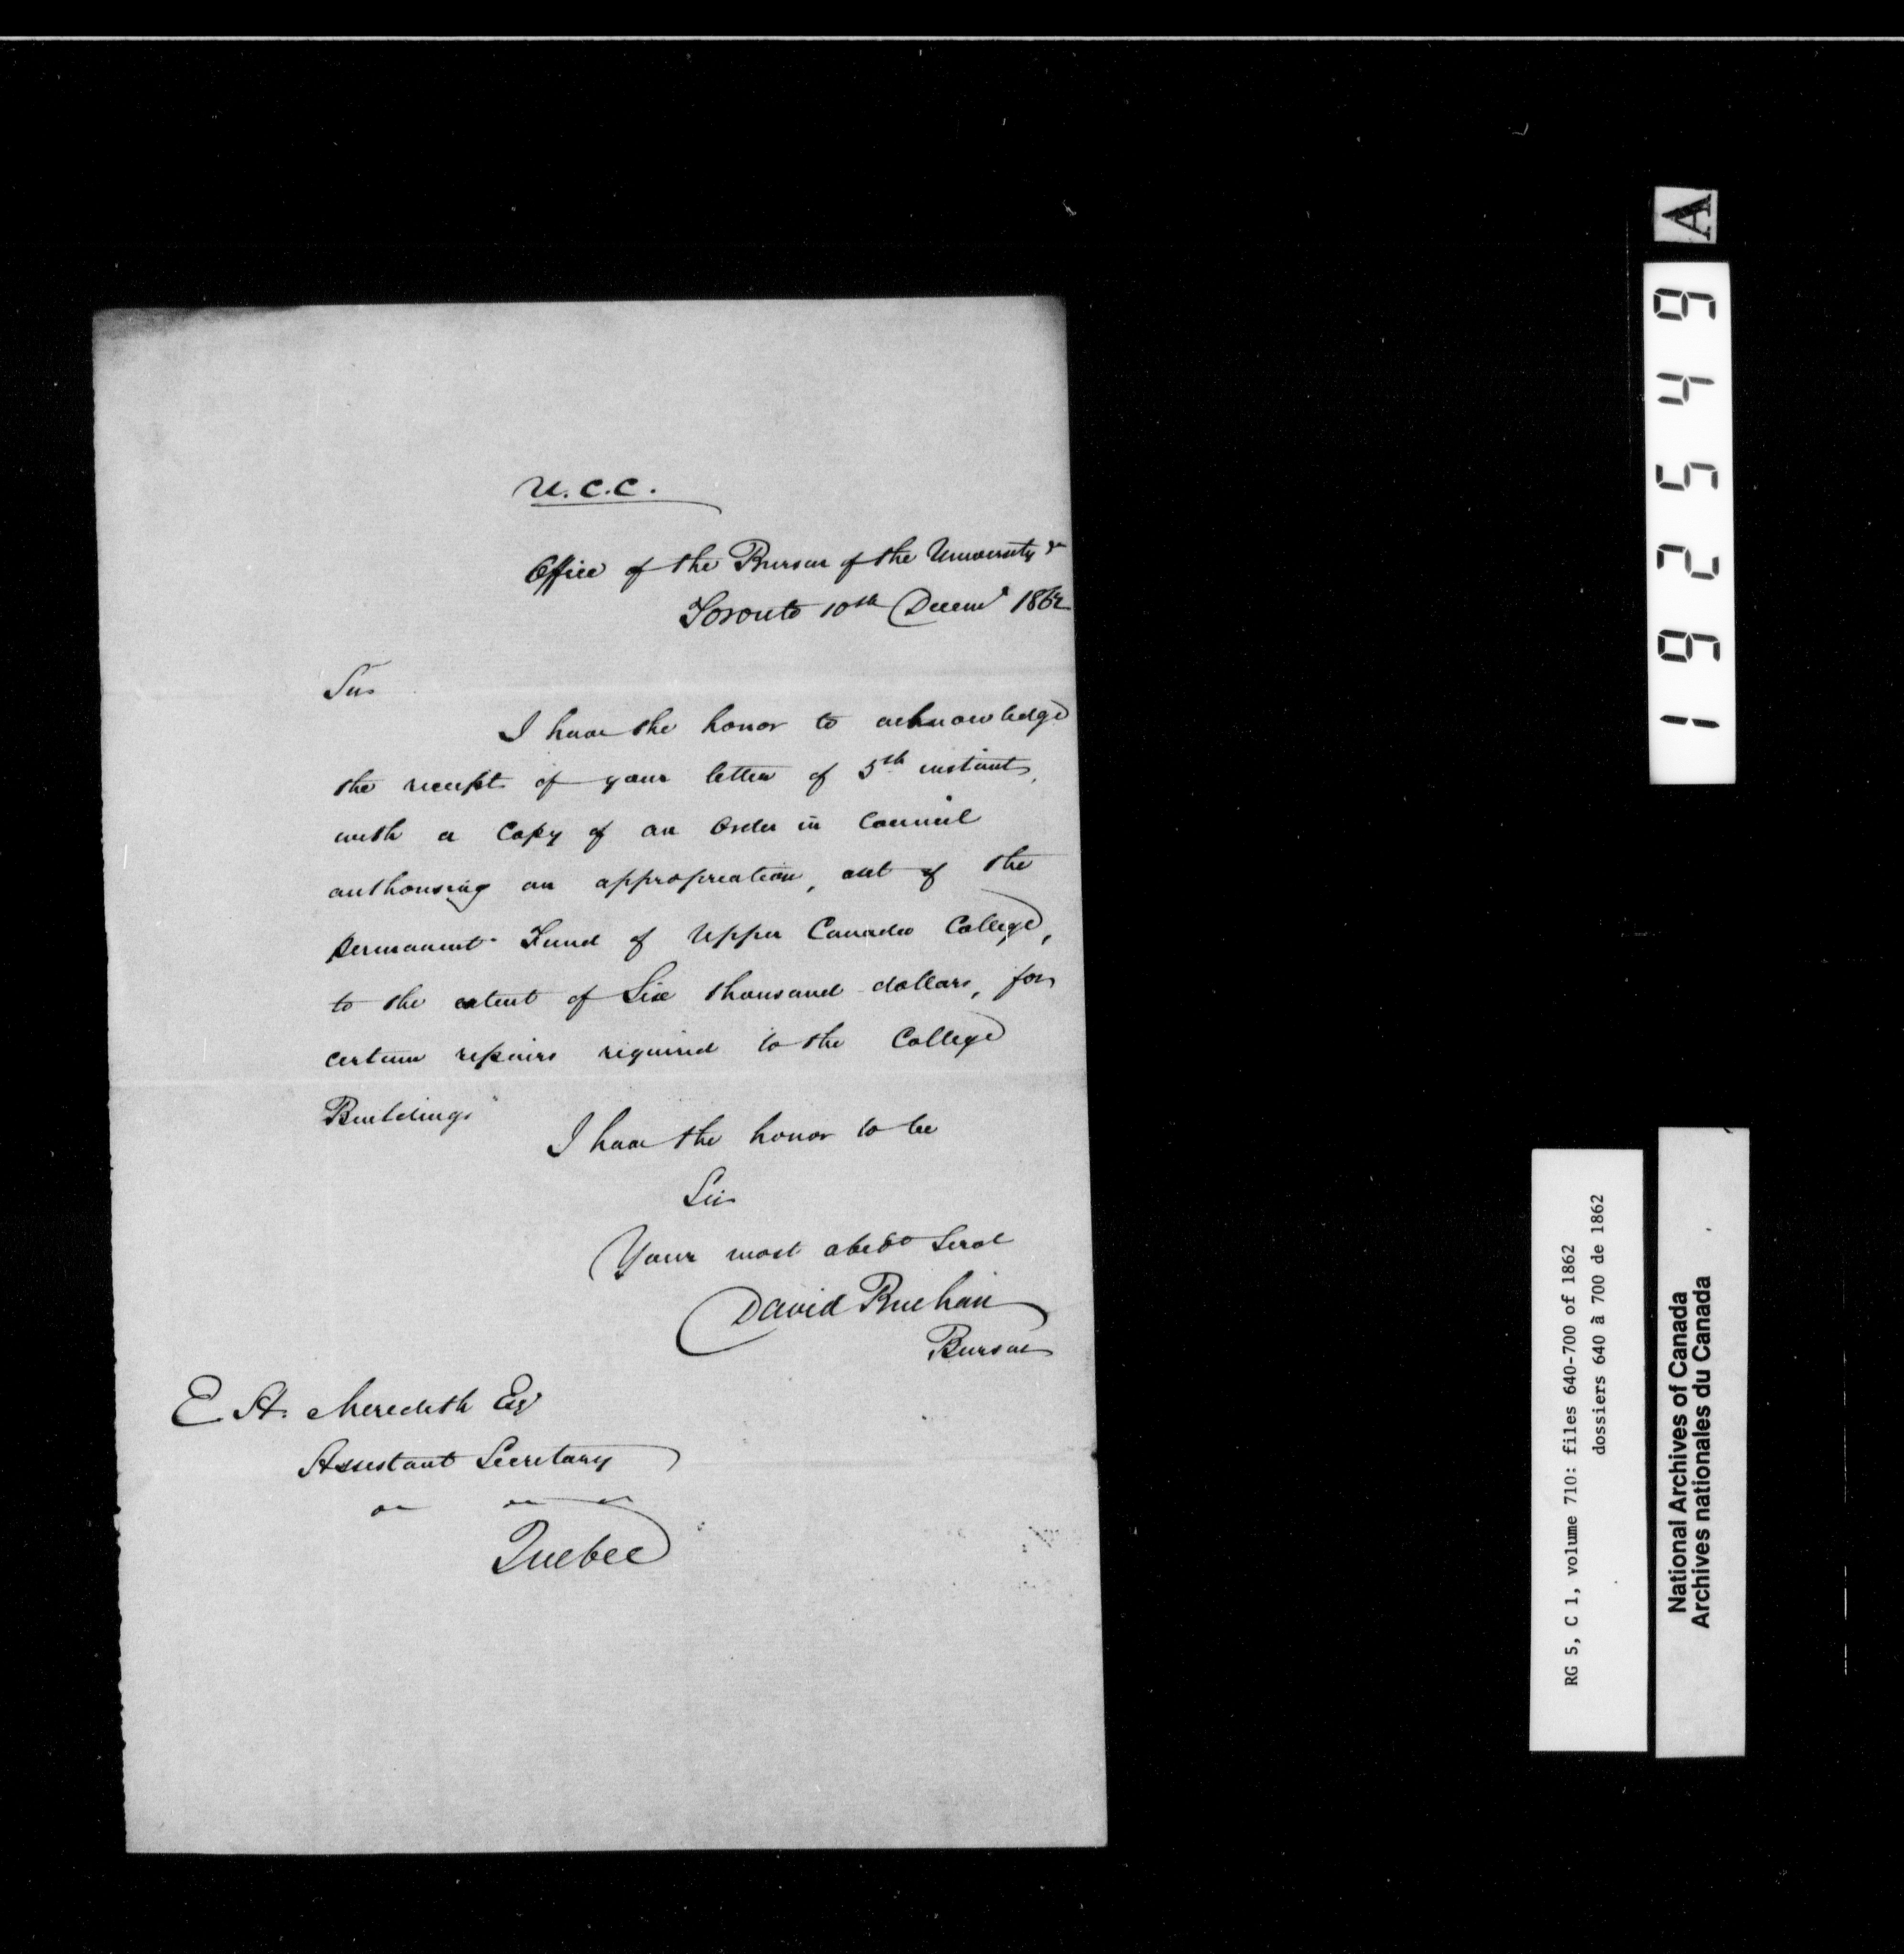 U.C.C.
Office of the Bursar of the University &c
Toronto 10th Decemr 1862
Sir
I have the honor to acknowledge
the receipt of your letter of 5th instant,
with a Copy of an Order in Council
authorising an appropriation, out of the
permanent Fund of Upper Canada College,
to the extent of Six thousand dollars, for
certain repairs required to the College
Buildings
I have the honor to be
Sir
Your most obedt Servt
David Buchan
Bursar
E. A. Meredith Esqr
Assistant Secretary
Quebec
A
192549
RG 5, C 1, volume 710: files 640-700 of 1862
dossiers 640 à 700 de 1862
National Archives of Canada
Archives nationales du Canada